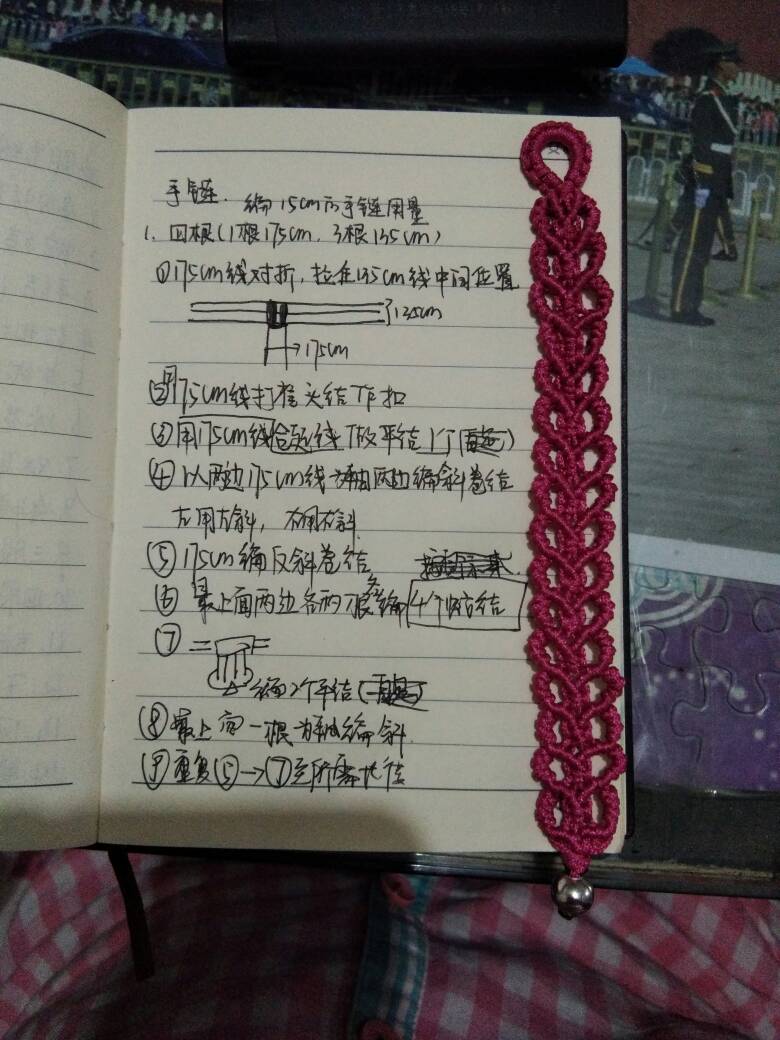 手链. 编15cm的手链用量
1. 四根(1根175cm, 3根135cm)
①175cm线对折, 拉在135cm线中间位置
135cm
175cm
②用175cm线打雀头结作扣
③用175cm线包其线做平结1个
④以两边175cm线为轴向两边编斜卷结
左用左斜, 右用右斜.
⑤175cm编反斜卷结
⑥最上面两边各两根各编4个结
⑦
编2个平结
⑧最上面一根为轴编斜.
⑨重复⑤→⑦至所需长度